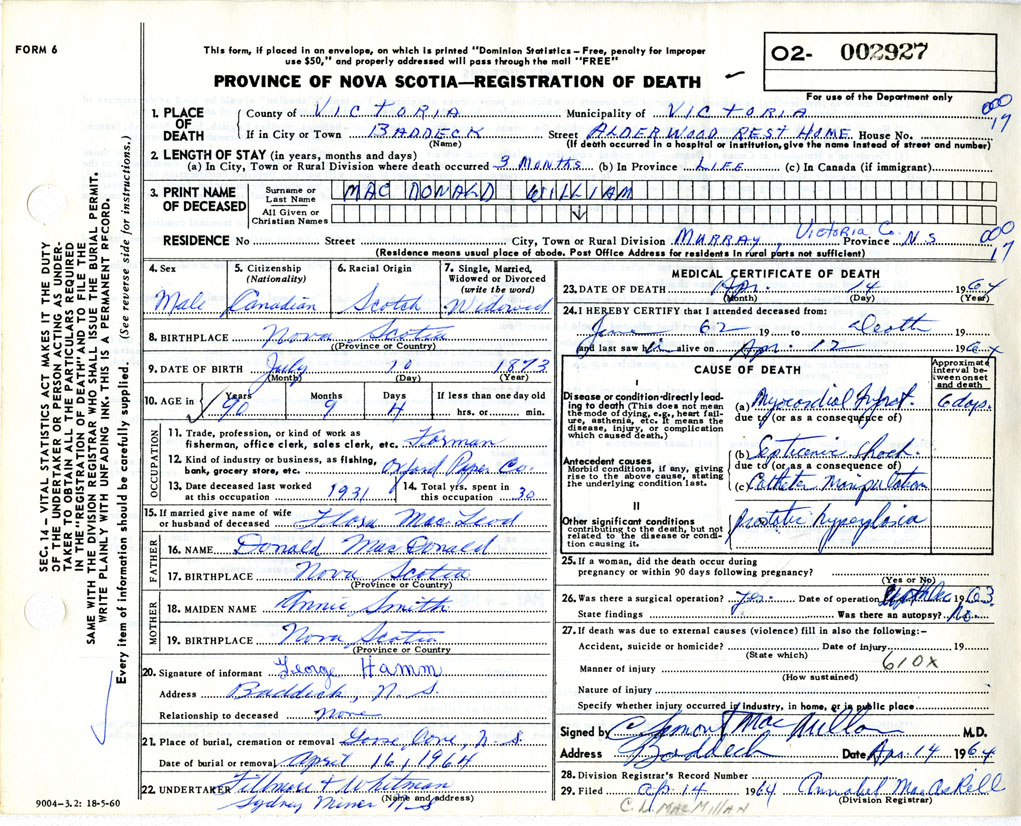 FORM 6
This form, if placed in an envelope, on which is printed "Dominion Statistics – Free, penalty for improper
use $50," and properly addressed will pass through the mail "FREE"
O2- 002927
For use of the Department only
PROVINCE OF NOVA SCOTIA—REGISTRATION OF DEATH
SEC. 14 – VITAL STATISTICS ACT MAKES IT THE DUTY
OF THE UNDERTAKER OR PERSON ACTING AS UNDER-
TAKER TO OBTAIN ALL THE PARTICULARS REQUIRED
IN THE "REGISTRATION OF DEATH" AND TO FILE THE
SAME WITH THE DIVISION REGISTRAR WHO SHALL ISSUE THE BURIAL PERMIT.
WRITE PLAINLY WITH UNFADING INK. THIS IS A PERMANENT RECORD.
Every item of information should be carefully supplied. (See reverse side for instructions.)
1. PLACE OF DEATH
County of VICTORIA Municipality of VICTORIA 000
If in City or Town BADDECK Street ALDERWOOD REST HOME House No. 17
(Name) (If death occurred in a hospital or institution, give the name instead of street and number)
2. LENGTH OF STAY (in years, months and days)
(a) In City, Town or Rural Division where death occurred 3 MONTHS (b) In Province LIFE (c) In Canada (if immigrant)
3. PRINT NAME OF DECEASED
Surname or Last Name MAC DONALD WILLIAM
All Given or Christian Names
RESIDENCE No Street City, Town or Rural Division MURRAY, Victoria Co. Province N S 000
(Residence means usual place of abode. Post Office Address for residents in rural parts not sufficient) 17
4. Sex 5. Citizenship (Nationality) 6. Racial Origin 7. Single, Married, Widowed or Divorced (write the word)
Male Canadian Scotch Widowed
8. BIRTHPLACE Nova Scotia
(Province or Country)
9. DATE OF BIRTH July 10 1873
(Month) (Day) (Year)
10. AGE in Years Months Days If less than one day old
90 9 4 hrs. or min.
OCCUPATION
11. Trade, profession, or kind of work as
fisherman, office clerk, sales clerk, etc. Forman
12. Kind of industry or business, as fishing,
bank, grocery store, etc. Oxford Paper Co.
13. Date deceased last worked at this occupation 1931 14. Total yrs. spent in this occupation 30
15. If married give name of wife
or husband of deceased Flora MacLeod
FATHER
16. NAME Donald MacDonald
17. BIRTHPLACE Nova Scotia
(Province or Country)
MOTHER
18. MAIDEN NAME Annie Smith
19. BIRTHPLACE Nova Scotia
(Province or Country
20. Signature of informant George Hamm
Address Baddeck, N. S.
Relationship to deceased none
21. Place of burial, cremation or removal Goose Cove, N. S.
Date of burial or removal April 16, 1964
22. UNDERTAKER Fillmore & Whitman
(Name and address)
Sydney Mines N S
9004–3.2: 18-5-60
MEDICAL CERTIFICATE OF DEATH
23. DATE OF DEATH Apr. 14 1964
(Month) (Day) (Year)
24. I HEREBY CERTIFY that I attended deceased from:
62 19 to Death 19
and last saw him alive on Apr. 12 196
CAUSE OF DEATH
Approximate interval between onset and death
I
Disease or condition directly leading to death (This does not mean the mode of dying, e.g., heart failure, asthenia, etc. It means the disease, injury, or complication which caused death.)
(a) Myocardial Infarct. 6 days.
due to (or as a consequence of)
Antecedent causes
Morbid conditions, if any, giving rise to the above cause, stating the underlying condition last.
(b) Septicemic Shock
due to (or as a consequence of)
(c) Catheter Manipulation
II
Other significant conditions contributing to the death, but not related to the disease or condition causing it.
prostatic
25. If a woman, did the death occur during
pregnancy or within 90 days following pregnancy?
(Yes or No)
26. Was there a surgical operation? Yes. Date of operation Dec 1963
State findings Was there an autopsy? No.
27. If death was due to external causes (violence) fill in also the following:–
Accident, suicide or homicide? Date of injury 19
(State which)
Manner of injury 610X
(How sustained)
Nature of injury
Specify whether injury occurred in industry, in home, or in public place
Signed by C Lamont MacMillan M.D.
Address Baddeck Date Apr. 14 1964
28. Division Registrar's Record Number
29. Filed apr. 14 1964 Annabel MacAskill
(Division Registrar)
C. L. MACMILLAN